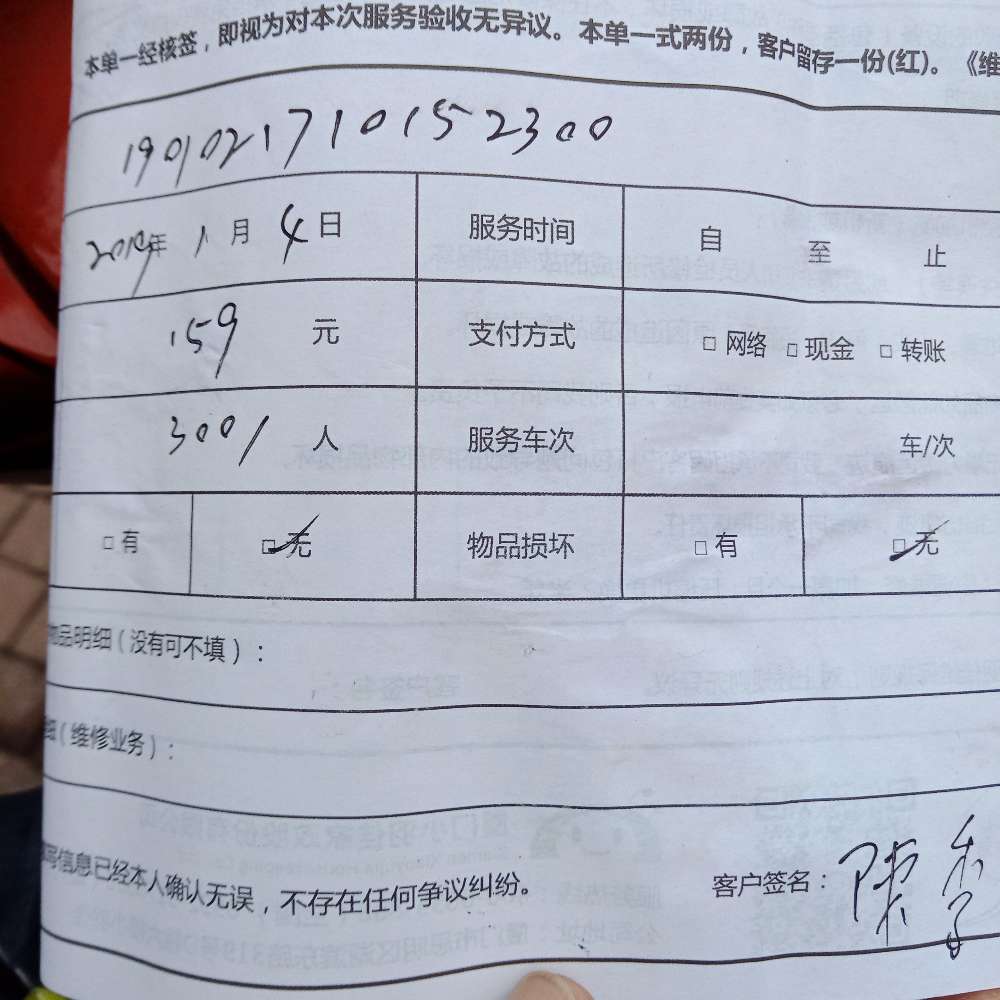 本单一经核签，即视为对本次服务验收无异议。本单一式两份，客户留存一份(红)。《维
1901021710152300
2019年 1月 4日 服务时间 自 至 止
159 元 支付方式 □ 网络 □ 现金 □ 转账
3001 人 服务车次 车/次
□ 有 □ 无 物品损坏 □ 有 □ 无
物品明细（没有可不填）：
细（维修业务）：
写信息已经本人确认无误，不存在任何争议纠纷。 客户签名：陈